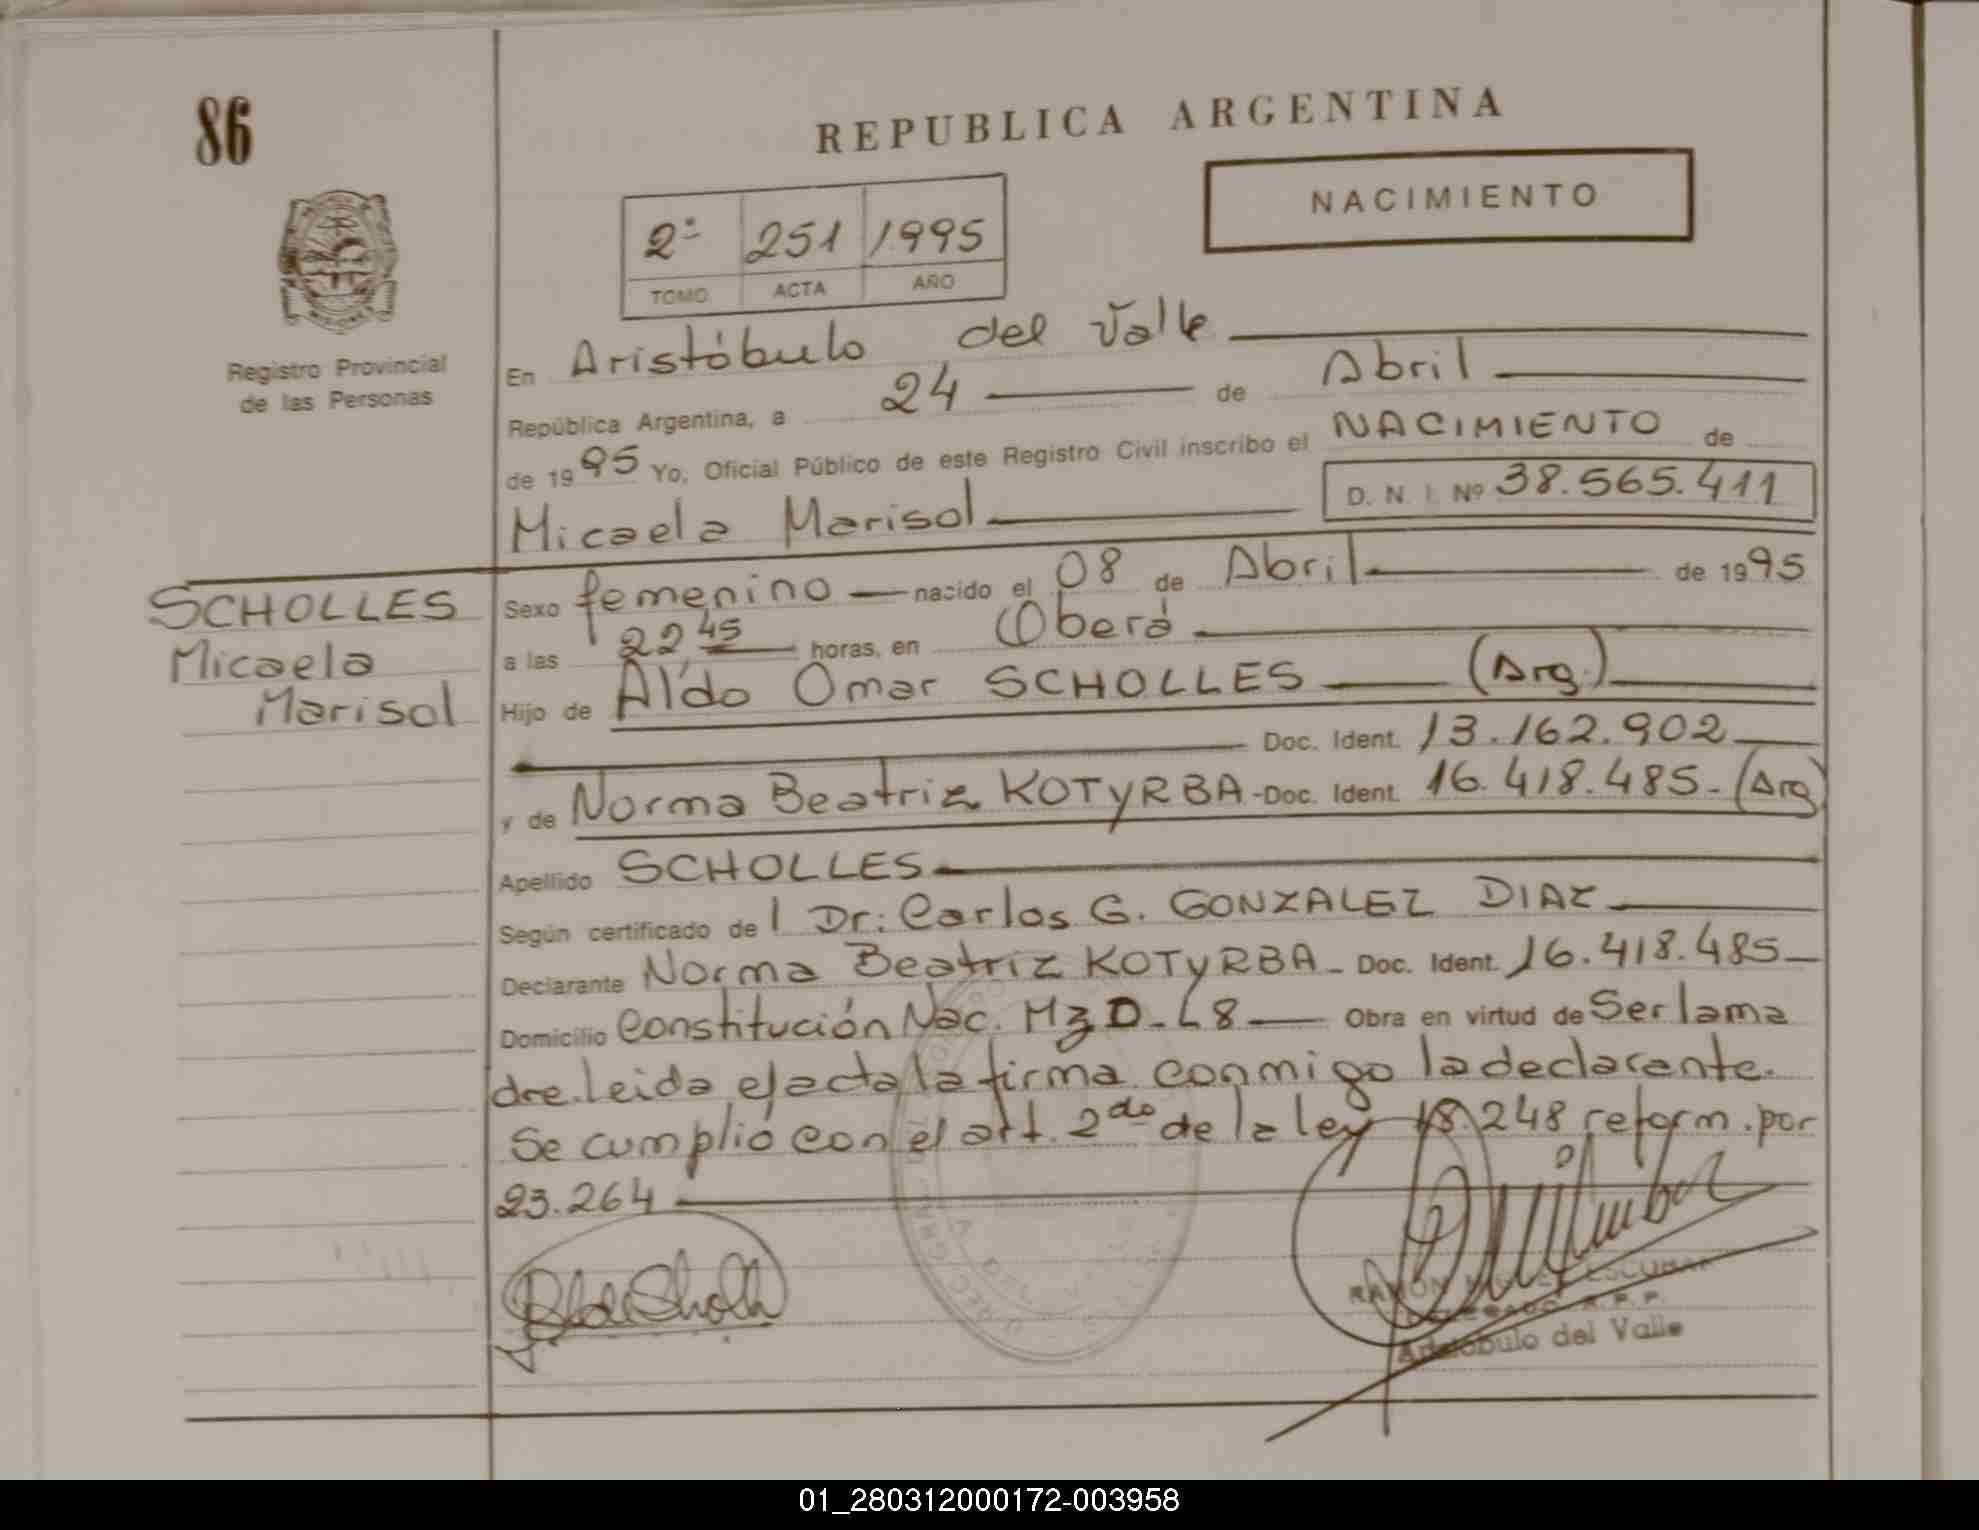 86
REPUBLICA ARGENTINA
NACIMIENTO
2º 251 1995
TOMO ACTA AÑO
Registro Provincial
de las Personas
En Aristóbulo del Valle
República Argentina, a 24 de Abril
de 1995 Yo, Oficial Público de este Registro Civil inscribo el NACIMIENTO de
Micaela Marisol D. N. I. Nº 38.565.411
SCHOLLES
Micaela
Marisol
Sexo femenino nacido el 08 de Abril de 1995
a las 22 45 horas, en Oberá
Hijo de Aldo Omar SCHOLLES (Arg.)
Doc. Ident. 13.162.902
y de Norma Beatriz KOTYRBA - Doc. Ident. 16.418.485 - (Arg)
Apellido SCHOLLES
Según certificado del Dr: Carlos G. GONZALEZ DIAZ
Declarante Norma Beatriz KOTYRBA - Doc. Ident. 16.418.485
Domicilio Constitución Nac. Mz D - L 8 Obra en virtud de Ser la ma
dre. leida el acta la firma conmigo la declarante.
Se cumplió con el art. 2do de la ley 18.248 reform. por
23.264
RAMON ESCOBAR
R. P. P.
Aristóbulo del Valle
01_280312000172-003958